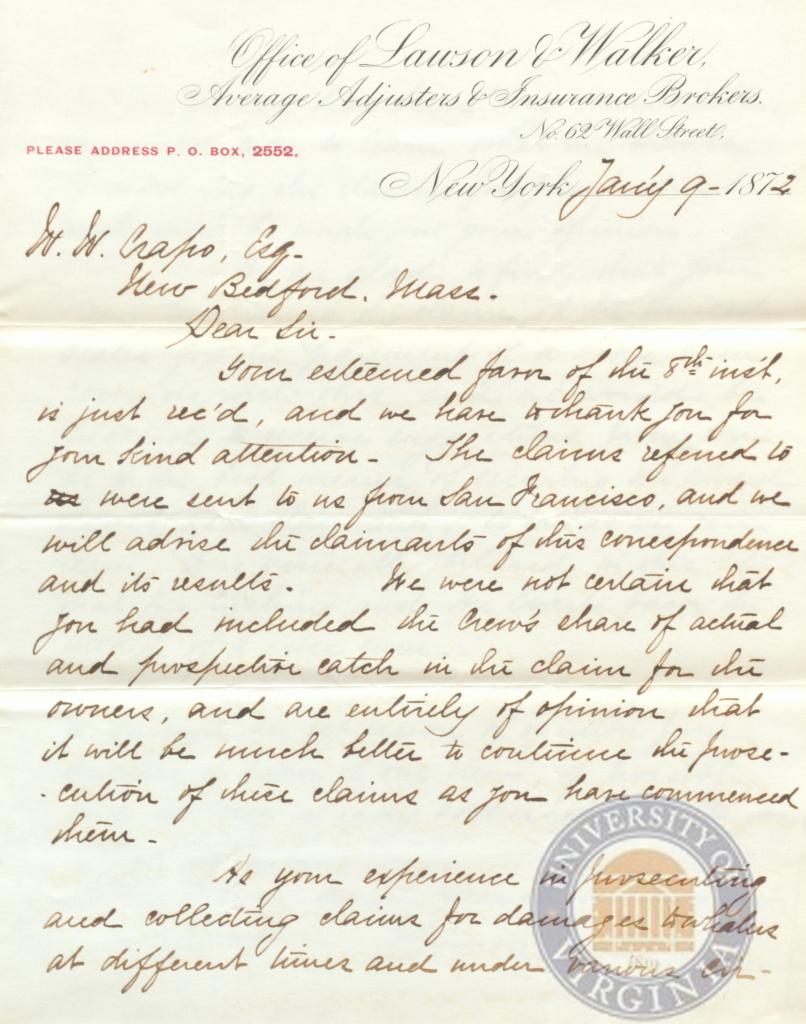 Office of Lawson & Walker,
Average Adjusters & Insurance Brokers.
No. 62 Wall Street.
PLEASE ADDRESS P. O. BOX, 2552.
New York Jan'y 9 - 1872
W. W. Crapo, Esq-
New Bedford. Mass.
Dear Sir-
Your esteemed favor of the 8th inst,
is just rec'd, and we have to thank you for
your kind attention - The claims referred to
were sent to us from San Francisco, and we
will advise the claimants of this correspondence
and its results. We were not certain that
you had included the Crew's share of actual
and prospective catch in the claim for the
owners, and are entirely of opinion that
it will be much better to continue the prose-
-cution of these claims as you have commenced
them -
As your experience in prosecuting
and collecting claims for damages to whalers
at different times and under various cir-
UNIVERSITY OF VIRGINIA
1819